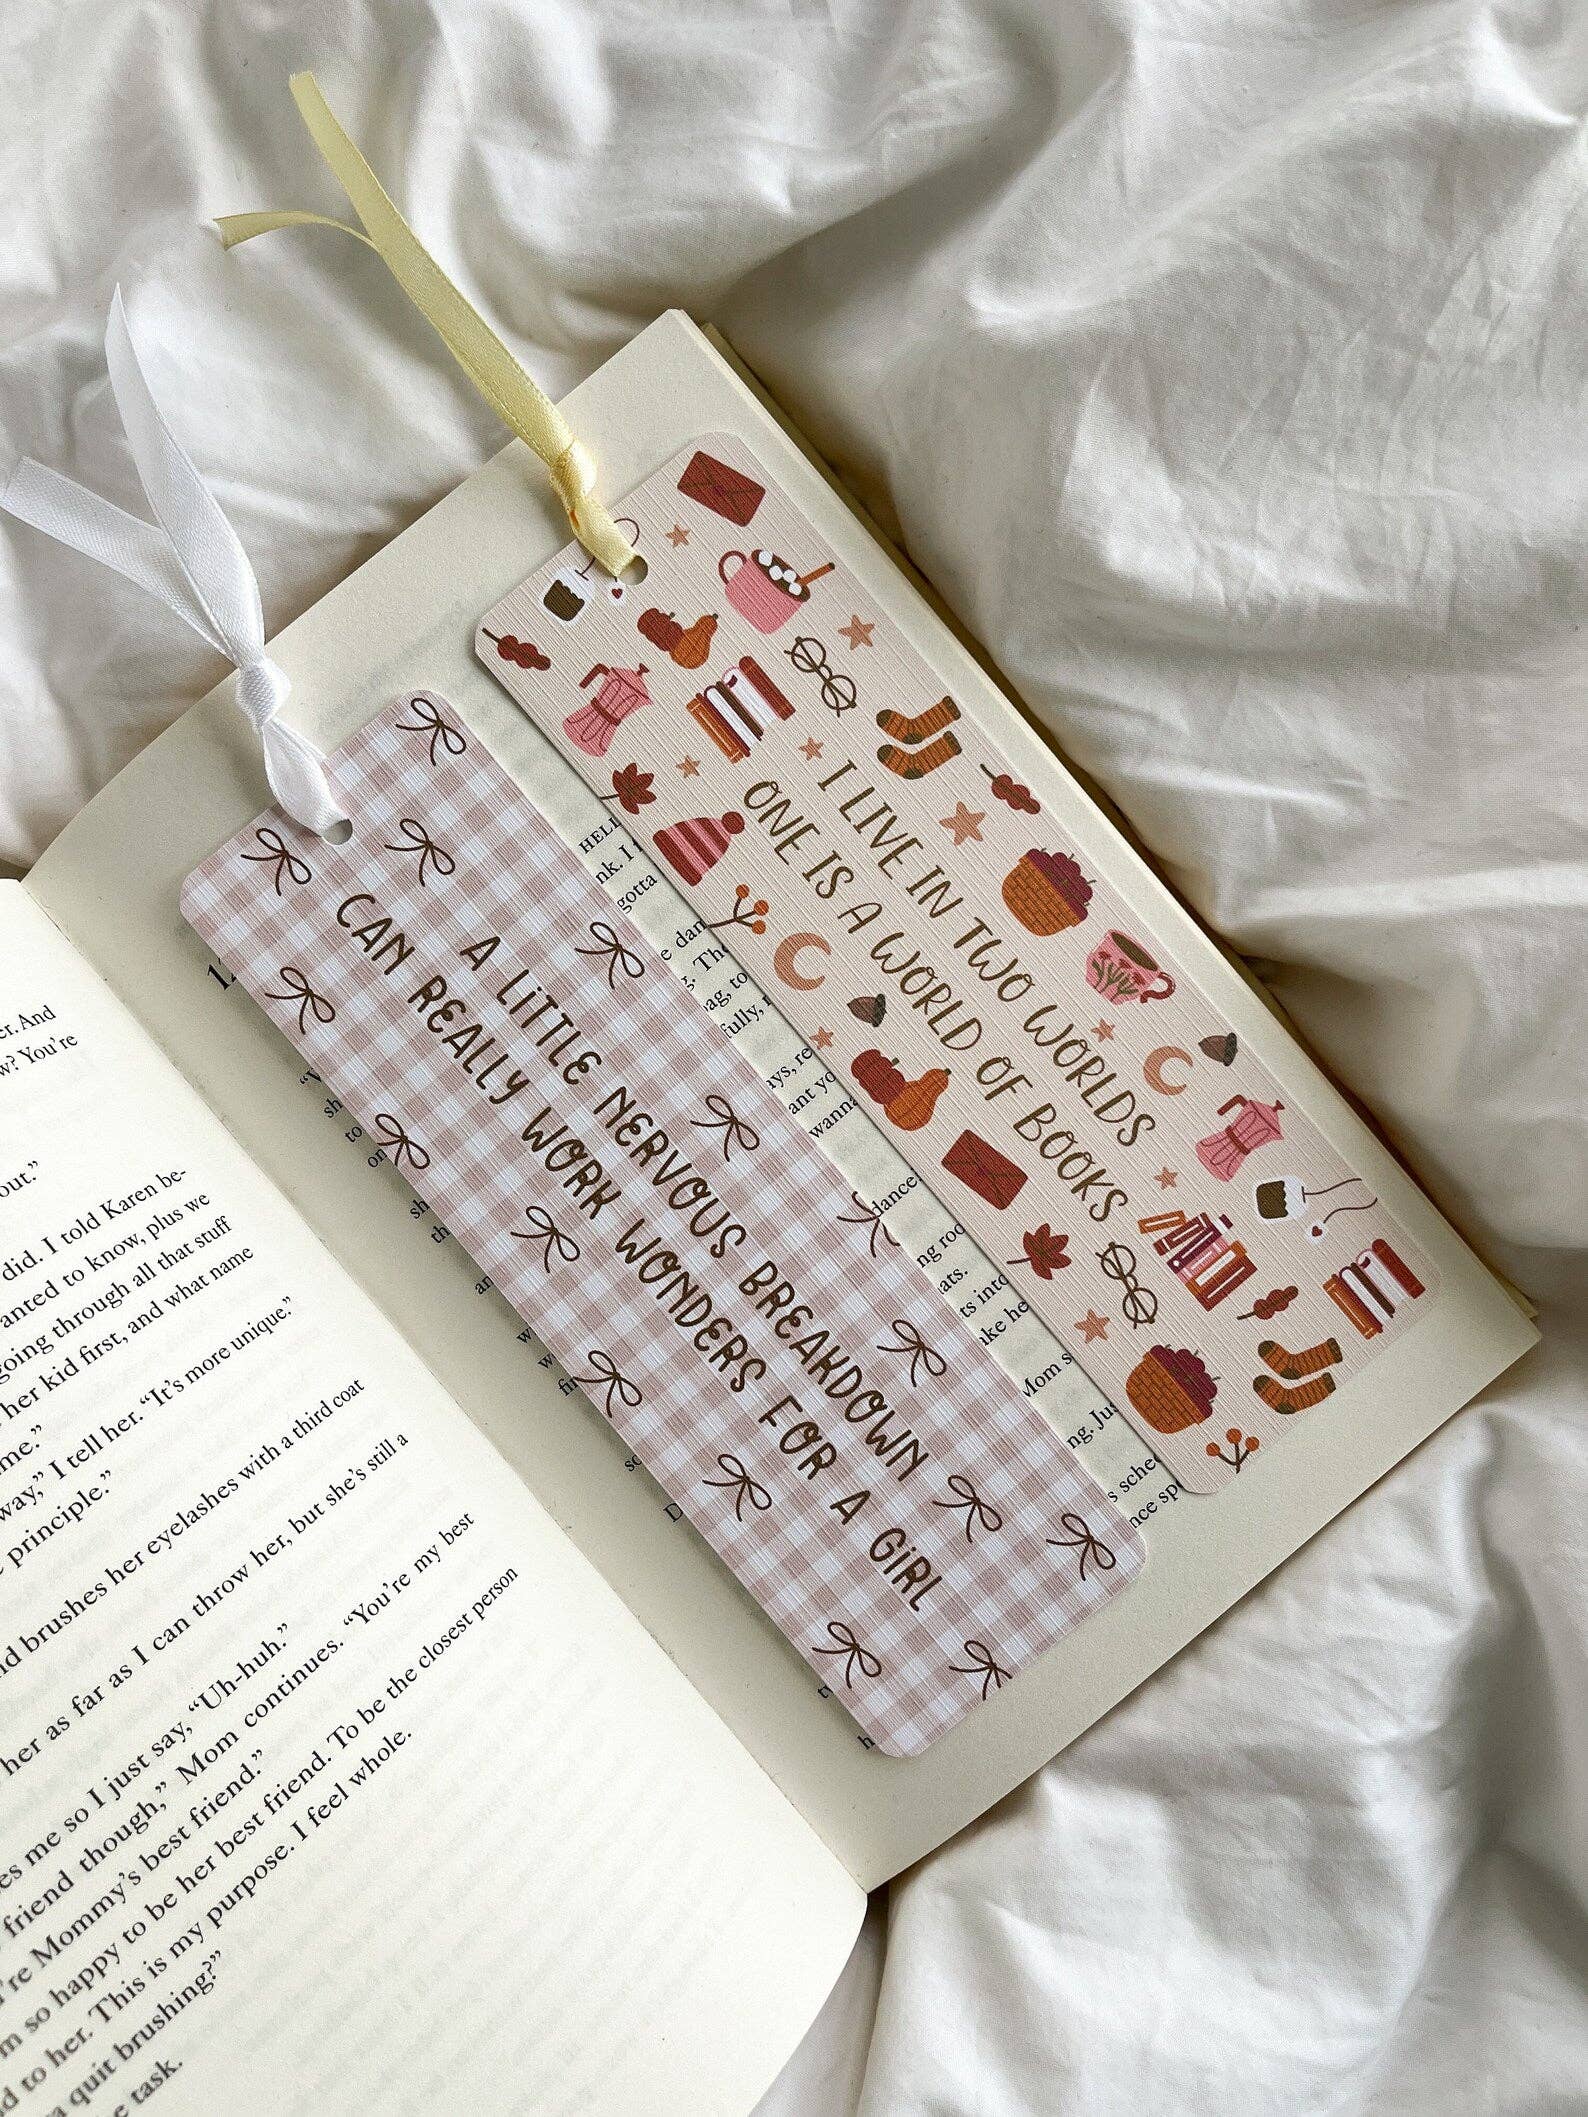 I LIVE IN TWO WORLDS
ONE IS A WORLD OF BOOKS
A LiTTLE NERVOUS BREAKDOWN
CAN REALLY WORK WONDERS FOR A GiRL
er. And
w? You're
out."
did. I told Karen be-
anted to know, plus we
going through all that stuff
her kid first, and what name
me."
way," I tell her. "It's more unique."
principle."
nd brushes her eyelashes with a third coat
her as far as I can throw her, but she's still a
es me so I just say, "Uh-huh."
friend though," Mom continues. "You're my best
're Mommy's best friend."
m so happy to be her best friend. To be the closest person
d to her. This is my purpose. I feel whole.
a quit brushing?"
e task.
HELL
nk. I
gotta
e dan
g. The
bag, to
fully,
ays, re
ant yo
wanna
dance
ng roo
ats.
ts into
ake he
Mom s
ng. Jus
s sched
nce sp